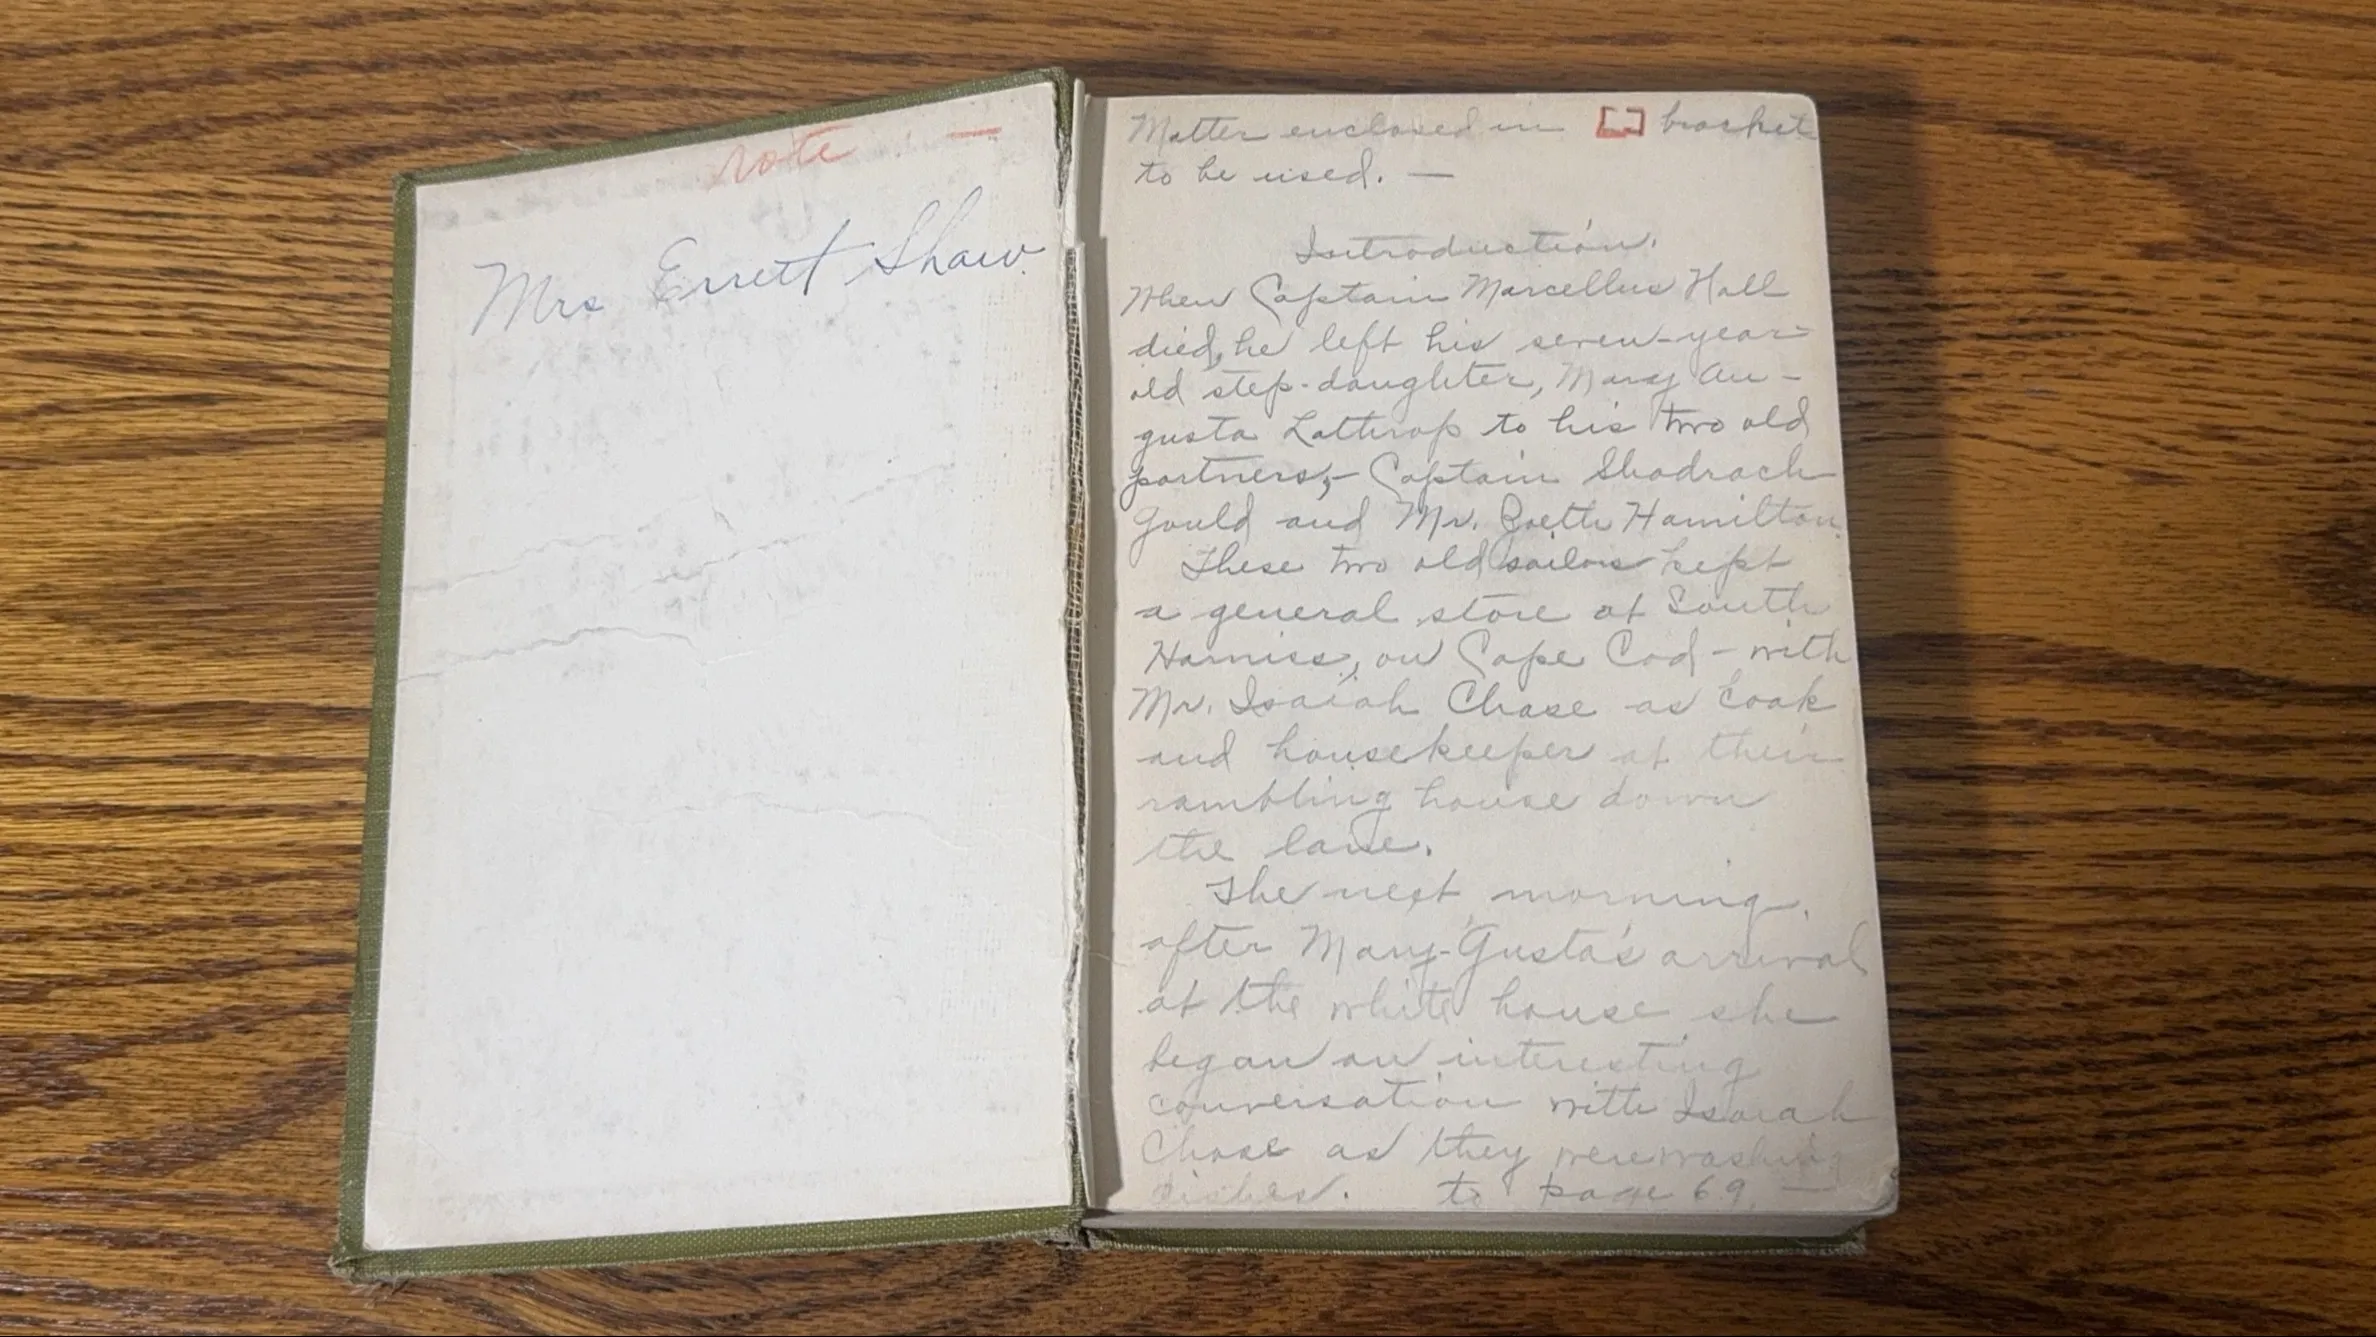 note : —
Mrs Errett Shaw.
Matter enclosed in [ ] bracket
to be used. —
Introduction.
When Captain Marcellus Hall
died, he left his seven-year-
old step-daughter, Mary Au-
gusta Lathrop to his two old
partners,- Captain Shadrach
Gould and Mr. Zoeth Hamilton.
These two old sailors kept
a general store at South
Harniss, on Cape Cod - with
Mr. Isaiah Chase as Cook
and housekeeper at their
rambling house down
the lane.
The next morning,
after Mary-'Gusta's arrival
at the white house she
began an interesting
conversation with Isaiah
Chase as they were washing
dishes. to page 69. —